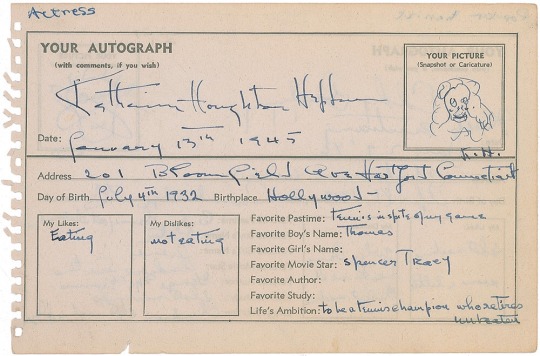 Actress
YOUR AUTOGRAPH
(with comments, if you wish)
YOUR PICTURE
(Snapshot or Caricature)
Katharine Houghton Hepburn
K.H.
Date: January 13th 1945
Address 201 Bloomfield Ave Hartford Connecticut
Day of Birth July 4th 1932 Birthplace Hollywood-
My Likes:
Eating
My Dislikes:
not eating
Favorite Pastime: Tennis in spite of my game
Favorite Boy's Name: Thomas
Favorite Girl's Name:
Favorite Movie Star: Spencer Tracy
Favorite Author:
Favorite Study:
Life's Ambition: to be a tennis champion who retires
unbeaten